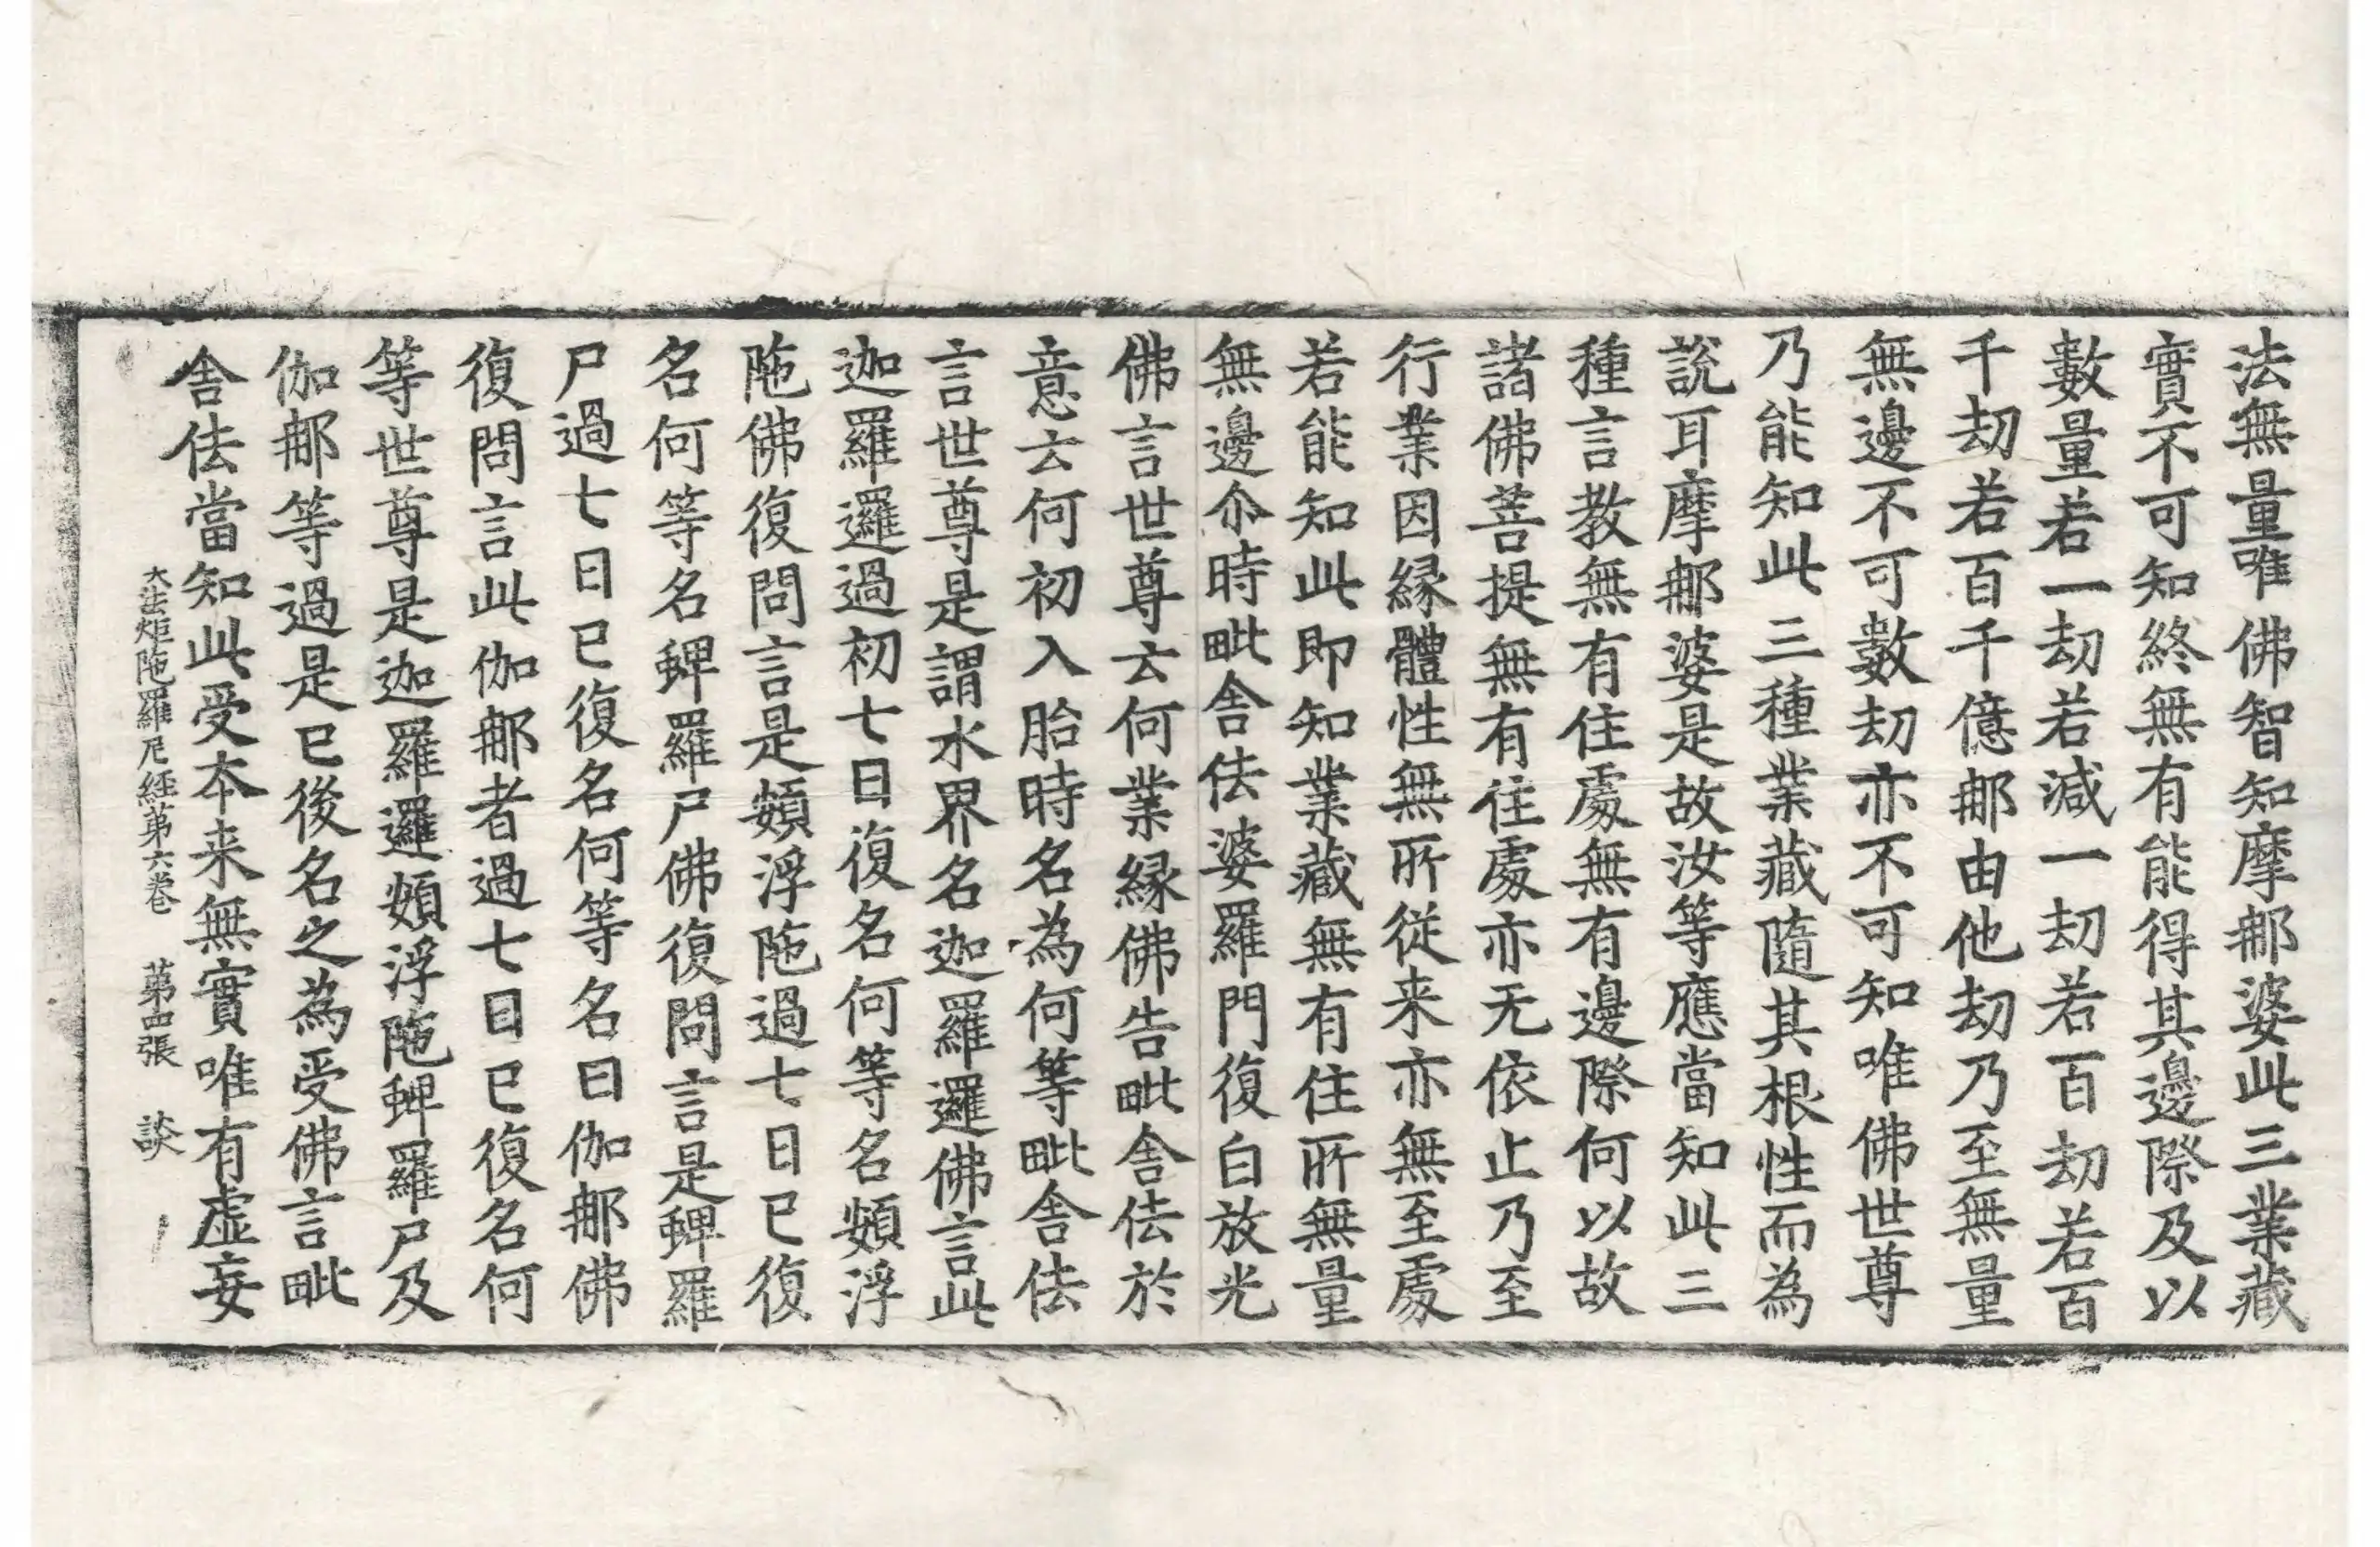 法無量唯佛智知摩那婆此三業藏
實不可知終無有能得其邊際及以
數量若一劫若減一劫若百劫若百
千劫若百千億那由他劫乃至無量
無邊不可數劫亦不可知唯佛世尊
乃能知此三種業藏隨其根性而為
說耳摩那婆是故汝等應當知此三
種言教無有住處無有邊際何以故
諸佛菩提無有住處亦无依止乃至
行業因縁體性無所從来亦無至處
若能知此即知業藏無有住所無量
無邊尒時毗舍佉婆羅門復白放光
佛言世尊云何業縁佛告毗舍佉於
意云何初入胎時名為何等毗舍佉
言世尊是謂水界名迦羅邏佛言此
迦羅邏過初七日復名何等名頞浮
陁佛復問言是頞浮陁過七日已復
名何等名蜱羅尸佛復問言是蜱羅
尸過七日已復名何等名曰伽那佛
復問言此伽那者過七日已復名何
等世尊是迦羅邏頞浮陁蜱羅尸及
伽那等過是已後名之為受佛言毗
舍佉當知此受本来無實唯有虛妄
大法炬陁羅尼經第六卷 第四張 談